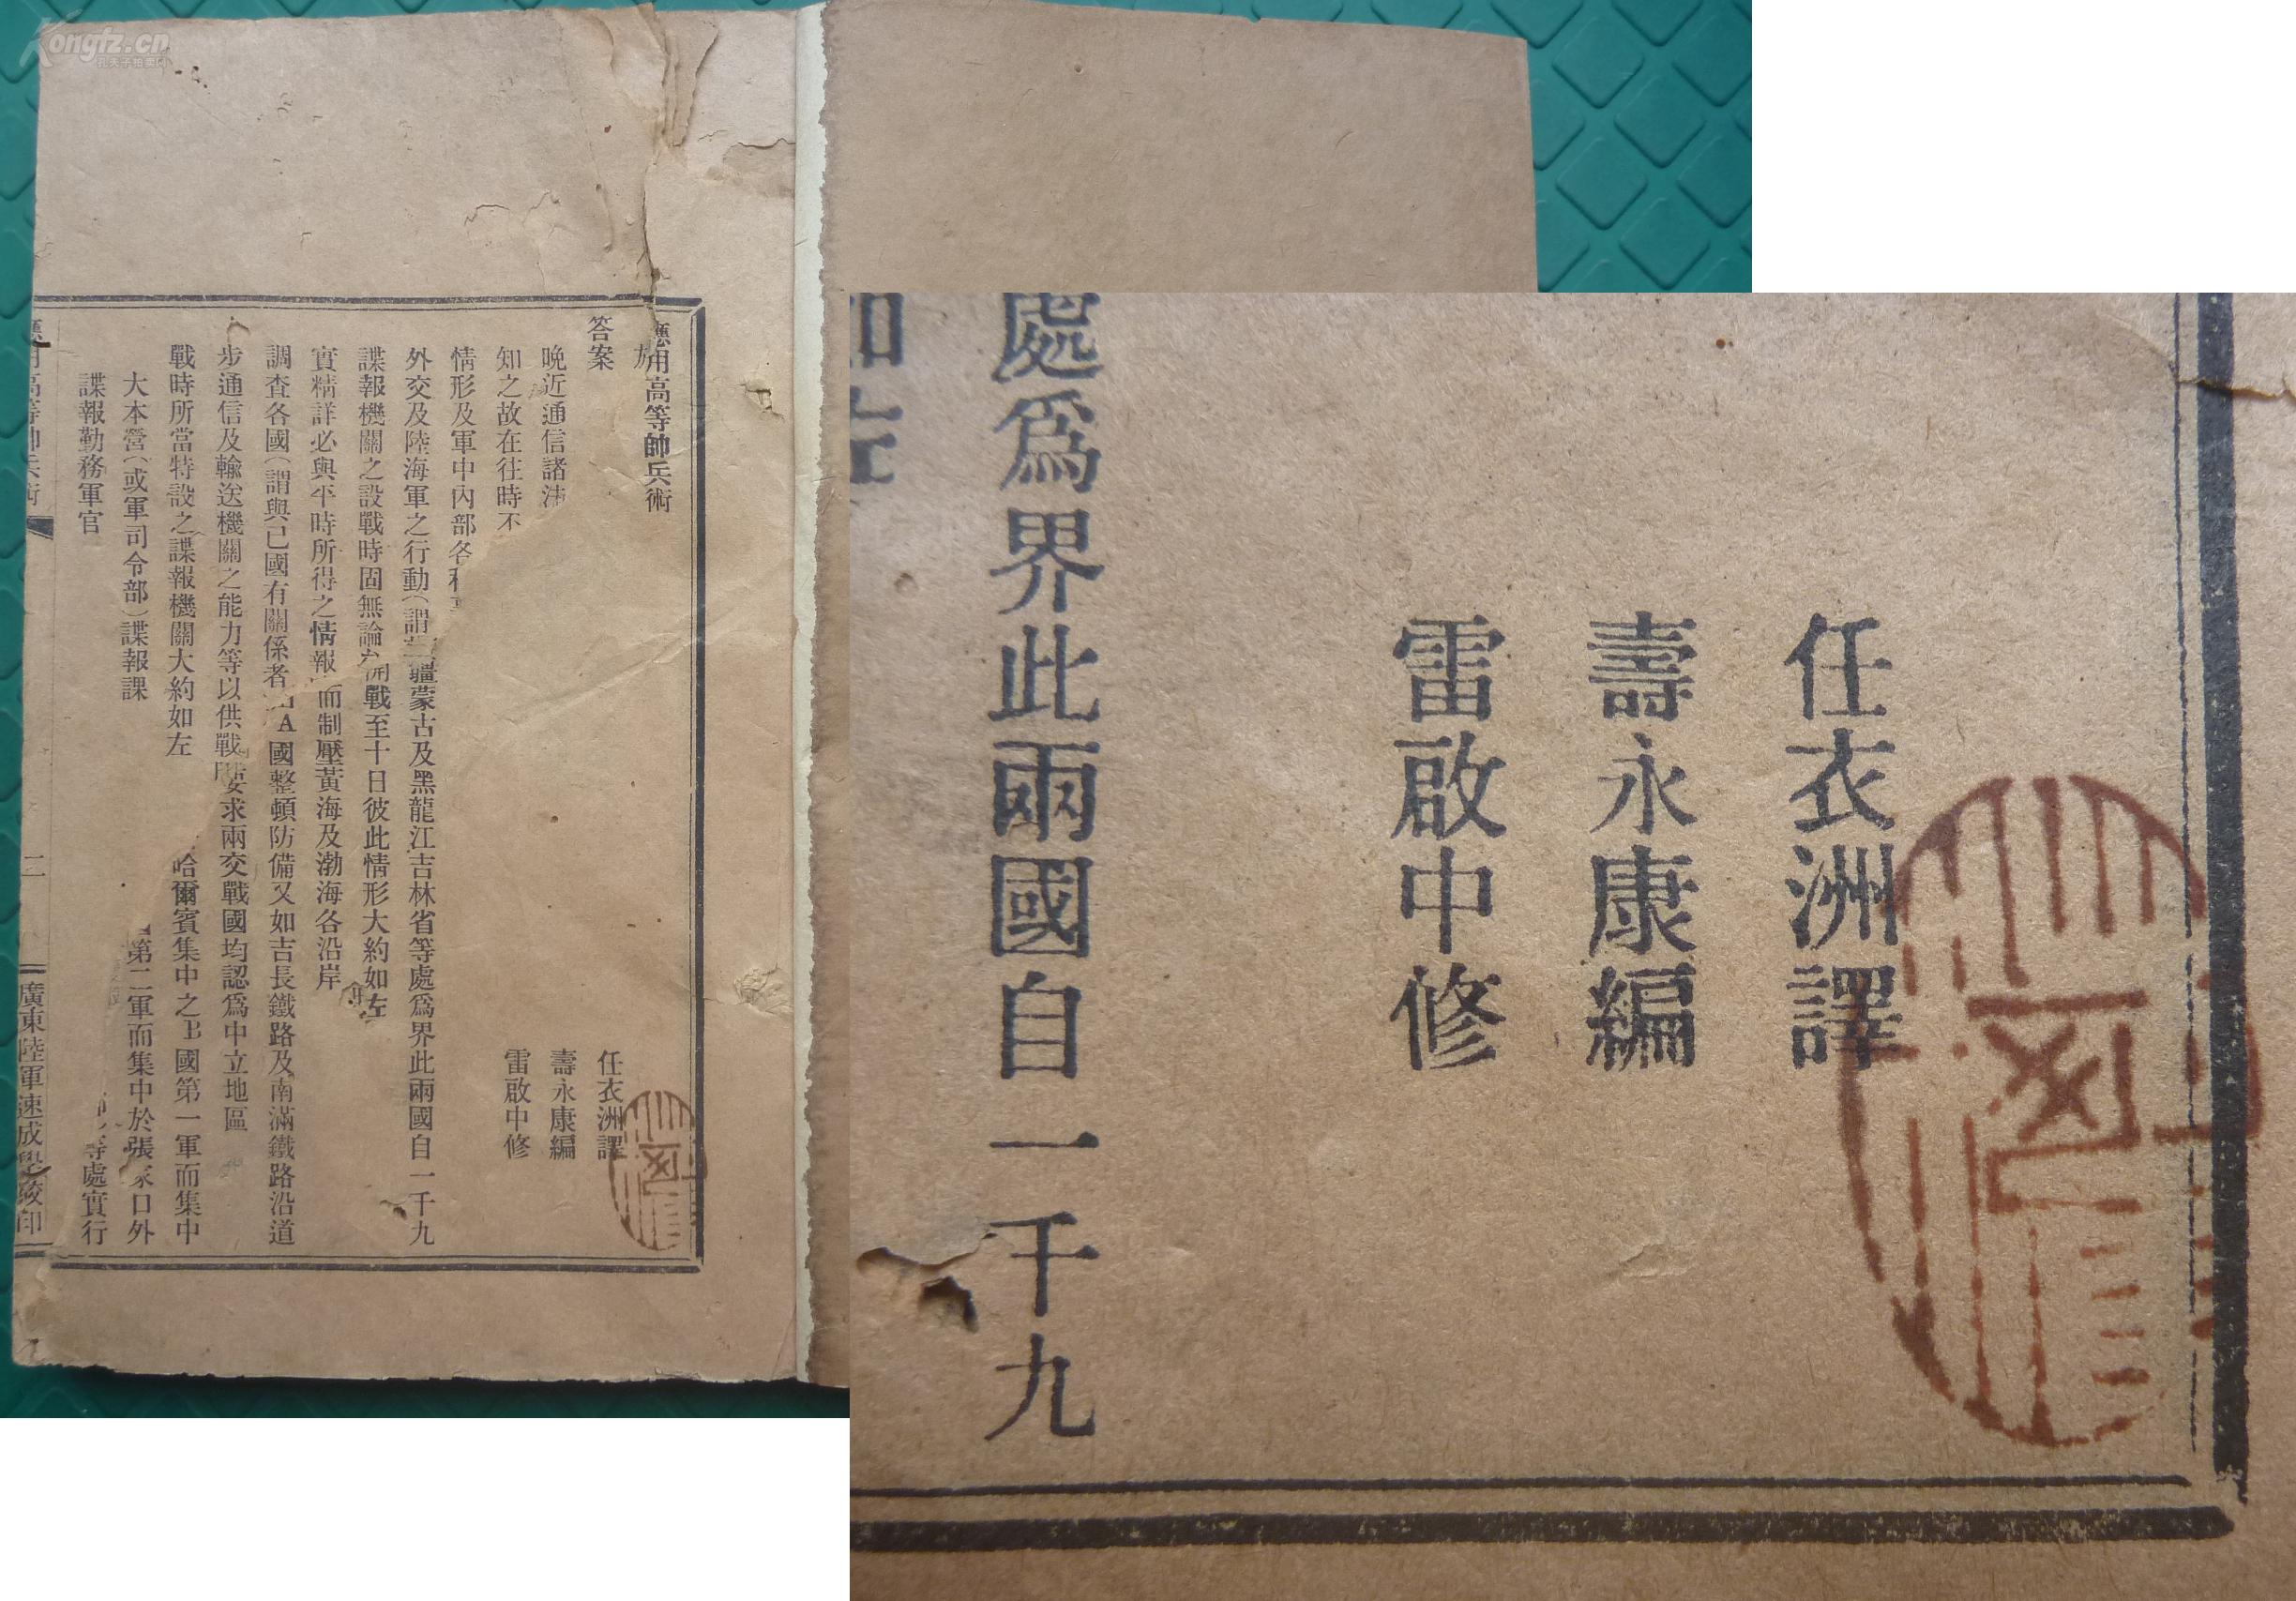 ongfz.cn
孔夫子拍卖网
應用高等帥兵術
答案
任衣洲譯
壽永康編
雷啟中修
晚近通信諸
知之故在往時不
情形及軍中內部各
外交及陸海軍之行動（謂 疆蒙古及黑龍江吉林省等處爲界此兩國自一千九
諜報機關之設戰時固無論 開戰至十日彼此情形大約如左
實精詳必與平時所得之情報 而制壓黃海及渤海各沿岸
調查各國（謂與已國有關係者 A國整頓防備又如吉長鐵路及南滿鐵路沿道
步通信及輸送機關之能力等以供戰 要求兩交戰國均認爲中立地區
戰時所當特設之諜報機關大約如左 哈爾賓集中之B國第一軍而集中
大本營（或軍司令部）諜報課 第二軍而集中於張家口外
諜報勤務軍官 等處實行
應用高等帥兵術 二 廣東陸軍速成學校印
任衣洲譯
壽永康編
雷啟中修
處爲界此兩國自一千九
如左